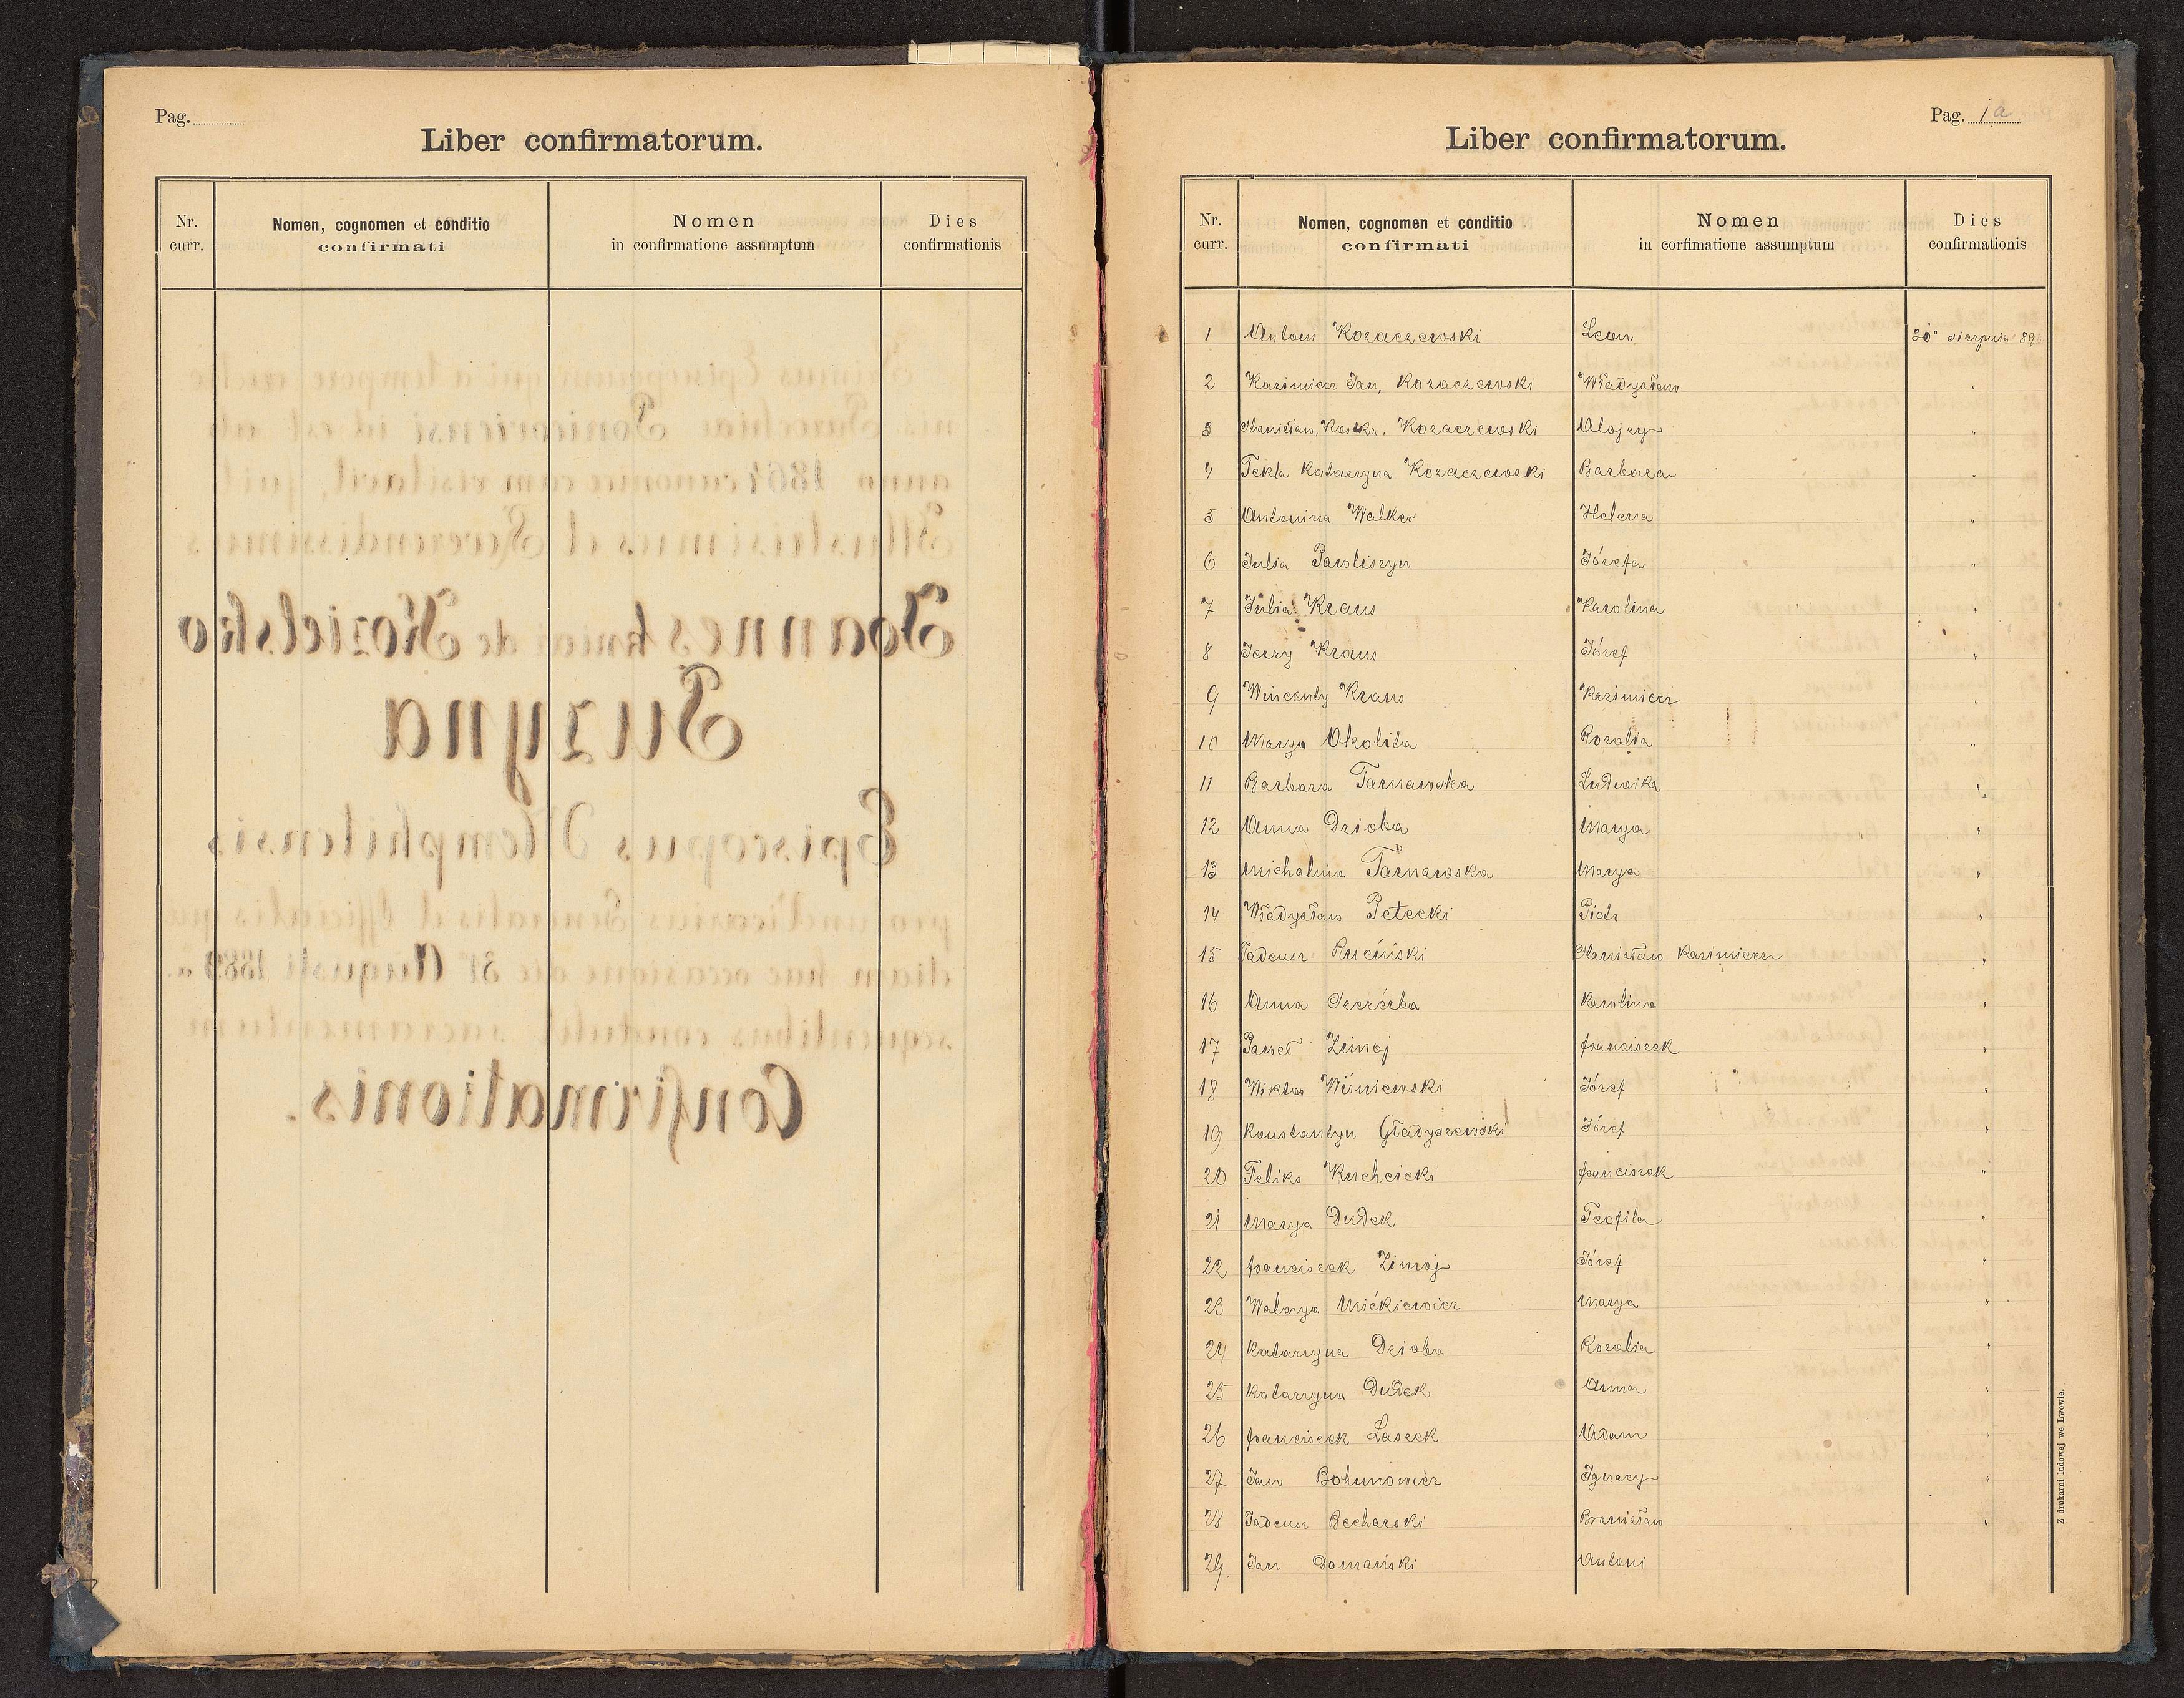 Pag.
Liber confirmatorum.
Nr. curr.
Nomen, cognomen et conditio confirmati
Nomen in confirmatione assumptum
Dies confirmationis
Joannes kniaź de Kozielsko
Puzyna
Episcopus Memphitensis
Confirmationis.
Pag. 1a
Liber confirmatorum.
Nr. curr.
Nomen, cognomen et conditio confirmati
Nomen in corfimatione assumptum
Dies confirmationis
1 Antoni Kozaczewski Leon 30° sierpnia 89
2 Kazimierz Jan, Kozaczewski Władysław "
3 Stanisław, Kostka, Kozaczewski Alojzy "
4 Tekla Katarzyna Kozaczewski Barbara "
5 Antonina Walker Helena "
6 Julia Pawliszyn Józefa "
7 Julia Kraus Karolina "
8 Jerzy Kraus Józef "
9 Wincenty Kraus Kazimierz "
10 Marya Okolita Rozalia "
11 Barbara Tarnawska Ludwika "
12 Anna Dzioba Marya "
13 Michalina Tarnawska Marya "
14 Władysław Petecki Piotr "
15 Tadeusz Ruciński Stanisław Kazimierz "
16 Anna Szczérba Karolina "
17 Paweł Zimoj franciszek "
18 Wiktor Wiśniewski Józef "
19 Konstantyn Gładyszewski Józef "
20 Feliks Kuchcicki franciszek "
21 Marya Dudek Teofila "
22 franciszek Zimoj Józef "
23 Walerya Mićkiewicz Marya "
24 Katarzyna Dzioba Rozalia "
25 Katarzyna Dudek Anna "
26 franciszek Laseck Adam "
27 Jan Bohunowicz Ignacy "
28 Tadeusz Becharski Bronisław "
29 Jan Domański Antoni
Z drukarni ludowej we Lwowie.